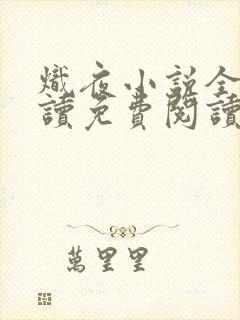 熾夜小說全
讀免費閱讀
萬里里